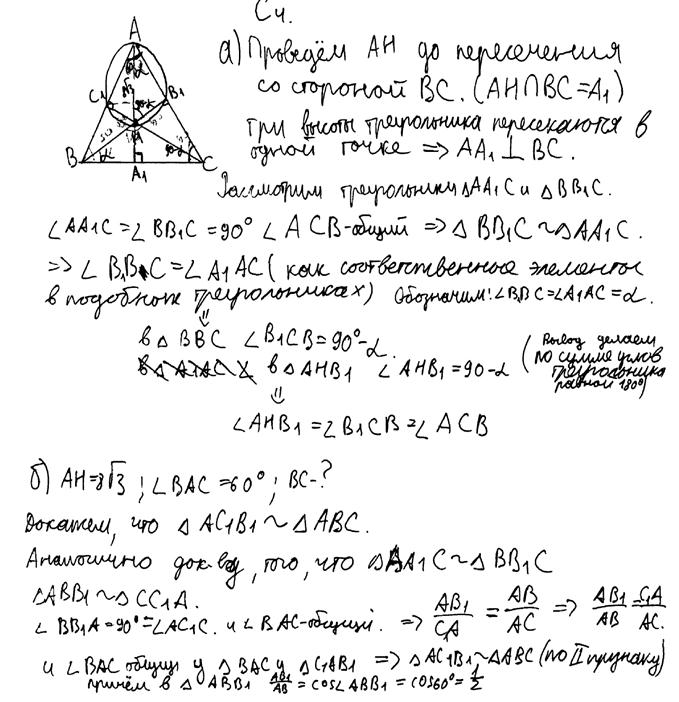 C4.
A
C1
B1
√3
B
A1
C
а) Проведём AH до пересечения
со стороной BC. (AH∩BC=A1)
три высоты треугольника пересекаются в
одной точке => AA1 ⊥ BC.
Рассмотрим треугольники △AA1C и △BB1C.
∠AA1C = ∠BB1C = 90° ∠ACB-общий => △BB1C ~ △AA1C.
=> ∠B1BC = ∠A1AC ( как соответственные элементы
в подобных треугольниках) Обозначим: ∠B1BC=∠A1AC=α.
⇓
в △ BBC ∠B1CB=90°-α.
в △AHB1 ∠AHB1=90-α
(Вывод делаем
по сумме углов
треугольника
равной 180°)
⇓
∠AHB1 = ∠B1CB = ∠ACB
б) AH=8√3 ; ∠BAC=60° ; BC-?
Докажем, что △ AC1B1 ~ △ABC.
Аналогично док-ву, того, что △AA1C ~ △BB1C
△ABB1 ~ △CC1A.
∠BB1A=90°=∠AC1C. и ∠BAC-общий. => AB1/C1A = AB/AC => AB1/AB = C1A/AC.
и ∠BAC общий у △BAC и △C1AB1 => △AC1B1~△ABC (по II признаку)
причём в △ABB1 AB1/AB = cos∠ABB1 = cos60° = 1/2